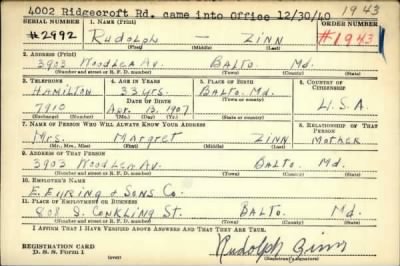 4002 Ridgecroft Rd. came into Office 12/30/40 1943
SERIAL NUMBER 1. NAME (Print) ORDER NUMBER
#2992 Rudolph — Zinn #1943
(First) (Middle) (Last)
2. ADDRESS (Print)
3903 Woodlea Av. Balto. Md.
(Number and street or R. F. D. number) (Town) (County) (State)
3. TELEPHONE 4. AGE IN YEARS 5. PLACE OF BIRTH 6. COUNTRY OF CITIZENSHIP
Hamilton 33 yrs. Balto. Md.
DATE OF BIRTH (Town or county)
7910 Apr. 1907 U.S.A.
(Exchange) (Number) (Mo.) (Day) (Yr.) (State or country)
7. NAME OF PERSON WHO WILL ALWAYS KNOW YOUR ADDRESS 8. RELATIONSHIP OF THAT PERSON
Mrs. Margret Zinn Mother
(Mr., Mrs., Miss) (First) (Middle) (Last)
9. ADDRESS OF THAT PERSON
3903 Woodlea Av. Balto. Md.
(Number and street or R. F. D. number) (Town) (County) (State)
10. EMPLOYER'S NAME
E. Eyring & Sons Co.
11. PLACE OF EMPLOYMENT OR BUSINESS
808 S. Conkling St. Balto. Md.
(Number and street or R. F. D. number) (Town) (County) (State)
I AFFIRM THAT I HAVE VERIFIED ABOVE ANSWERS AND THAT THEY ARE TRUE.
REGISTRATION CARD
D. S. S. Form 1 (over) Rudolph Zinn
(Registrant's signature)